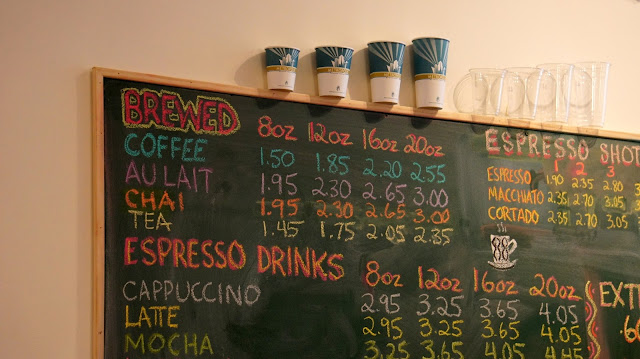 BREWED 8oz 12oz 16oz 20oz
COFFEE 1.50 1.85 2.20 2.55
AU LAIT 1.95 2.30 2.65 3.00
CHAI 1.95 2.30 2.65 3.00
TEA 1.45 1.75 2.05 2.35
ESPRESSO DRINKS 8oz 12oz 16oz 20oz
CAPPUCCINO 2.95 3.25 3.65 4.05
LATTE 2.95 3.25 3.65 4.05
MOCHA 3.25 3.60 4.05 4.45
ESPRESSO SHOT
1 2 3
ESPRESSO 1.90 2.35 2.80
MACCHIATO 2.35 2.70 3.05
CORTADO 2.35 2.70 3.05
EXT